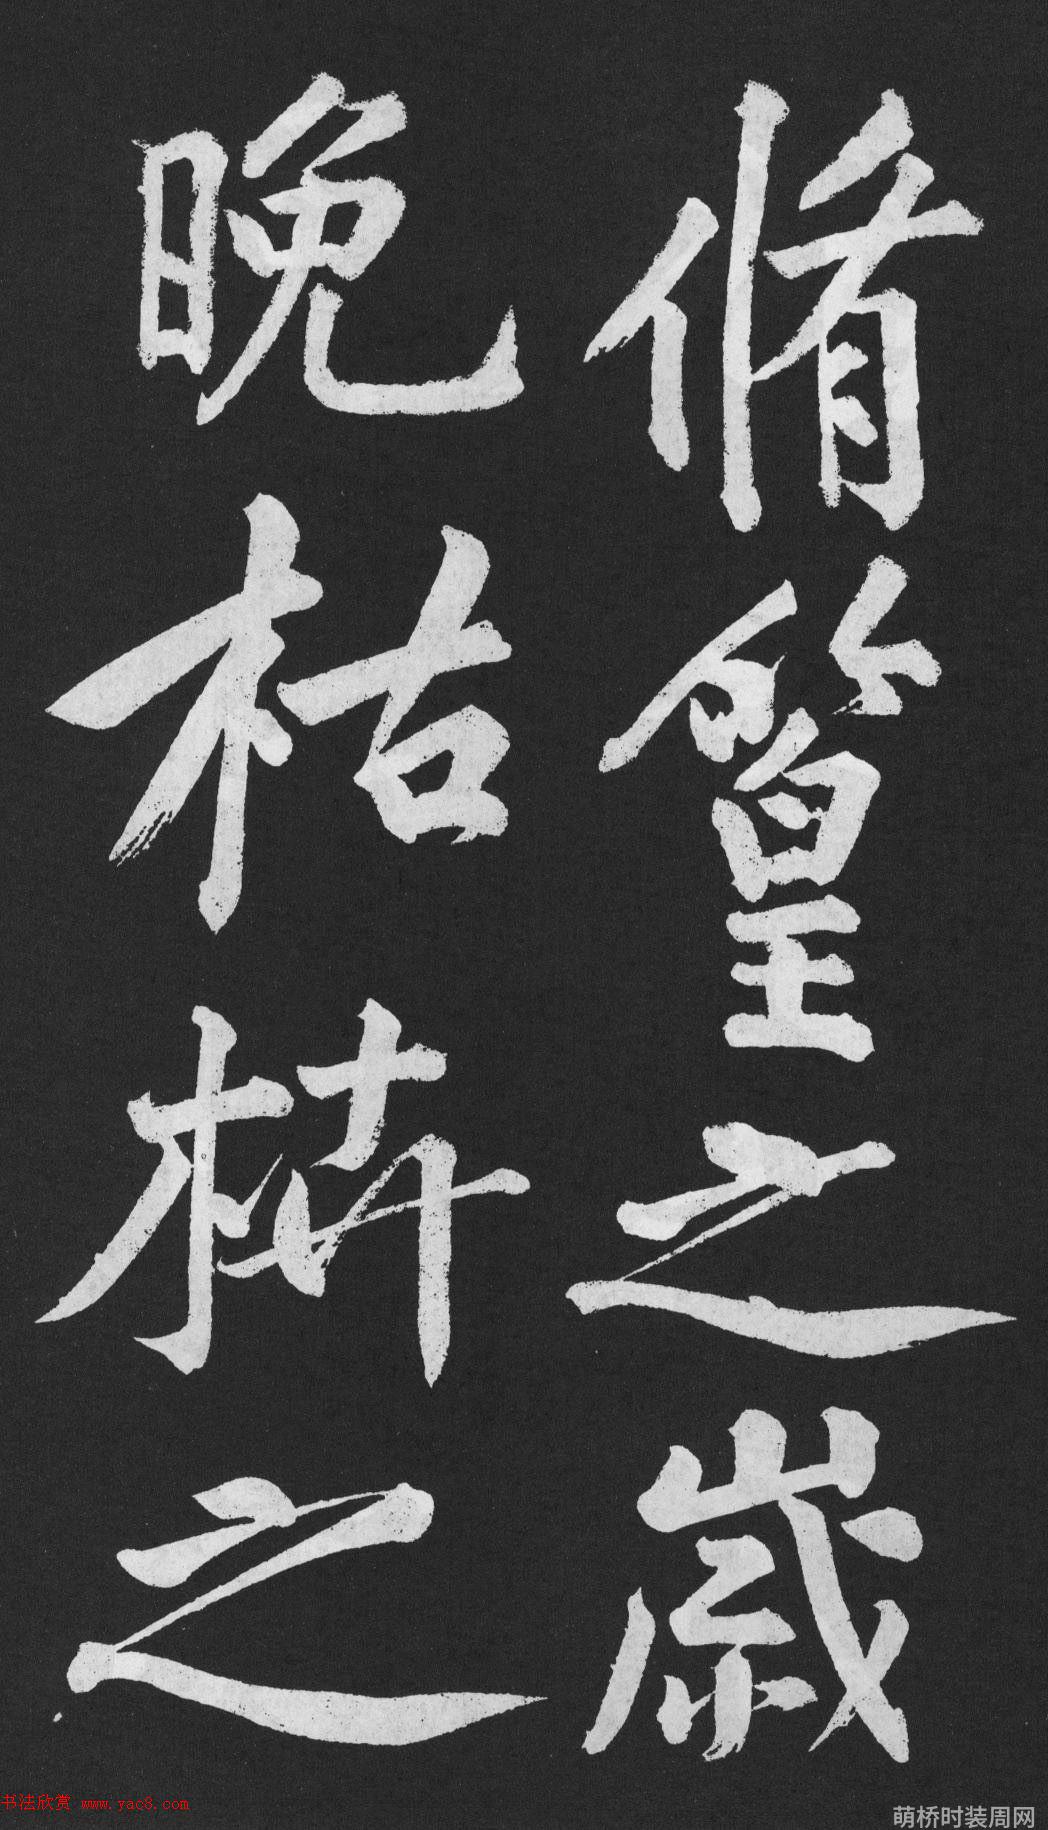 脩篁之歲
晚枯枿之
书法欣赏 www.yac8.com
萌桥时装周网